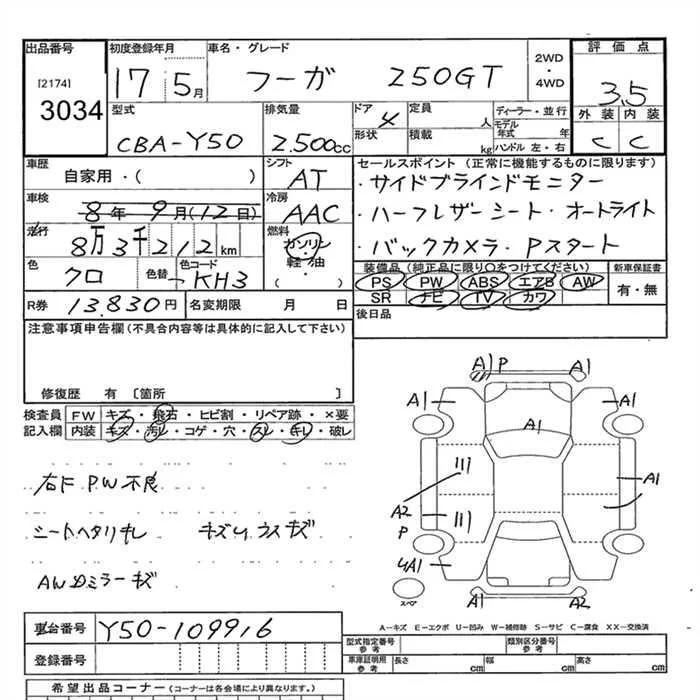 出品番号
[2174]
3034
初度登録年月
17 5月
車名・グレード
フーガ 250GT
2WD
・
4WD
評価点
3.5
外装 内装
C C
型式
CBA-Y50
排気量
2.500cc
ドア 4
形状
定員 人
積載 kg
ディーラー・並行
モデル年式 年
ハンドル 左・右
車歴
自家用・( )
シフト
AT
車検
8年 9月(12日)
冷房
AAC
走行
8万3千212km
燃料
ガソリン
軽・油
( ・ )
色
クロ
色替
色コード
KH3
R券 13.830円
名変期限 月 日
セールスポイント (正常に機能するものに限ります)
・サイドブラインドモニター
・ハーフレザーシート・オートライト
・バックカメラ・Pスタート
装備品 (純正品に限り○をつけてください)
PS PW ABS エアB AW
SR ナビ TV カワ
新車保証書
有・無
後日品
注意事項申告欄 (不具合内容等は具体的に記入して下さい)
修復歴 有 [箇所 ]
検査員 FW キズ・飛石・ヒビ割・リペア跡・×要
記入欄 内装 キズ・汚レ・コゲ・穴・スレ・キレ・破レ
右F PW不良
シートヘタリキレ キズUウスキズ
AWDミラーキズ
A1 P A1
A1 A1
A1
A1
A2
P
4A1
A1 A2
スペア
A-キズ E-エクボ U-凹み W-補修跡 S-サビ C-腐食 XX-交換済
車台番号 Y50-109916
登録番号
型式指定番号
参考
類別区分番号
参考
車庫証明用
参考
長さ cm
幅 cm
高さ cm
希望出品コーナー (コーナーは各会場により異なります。)